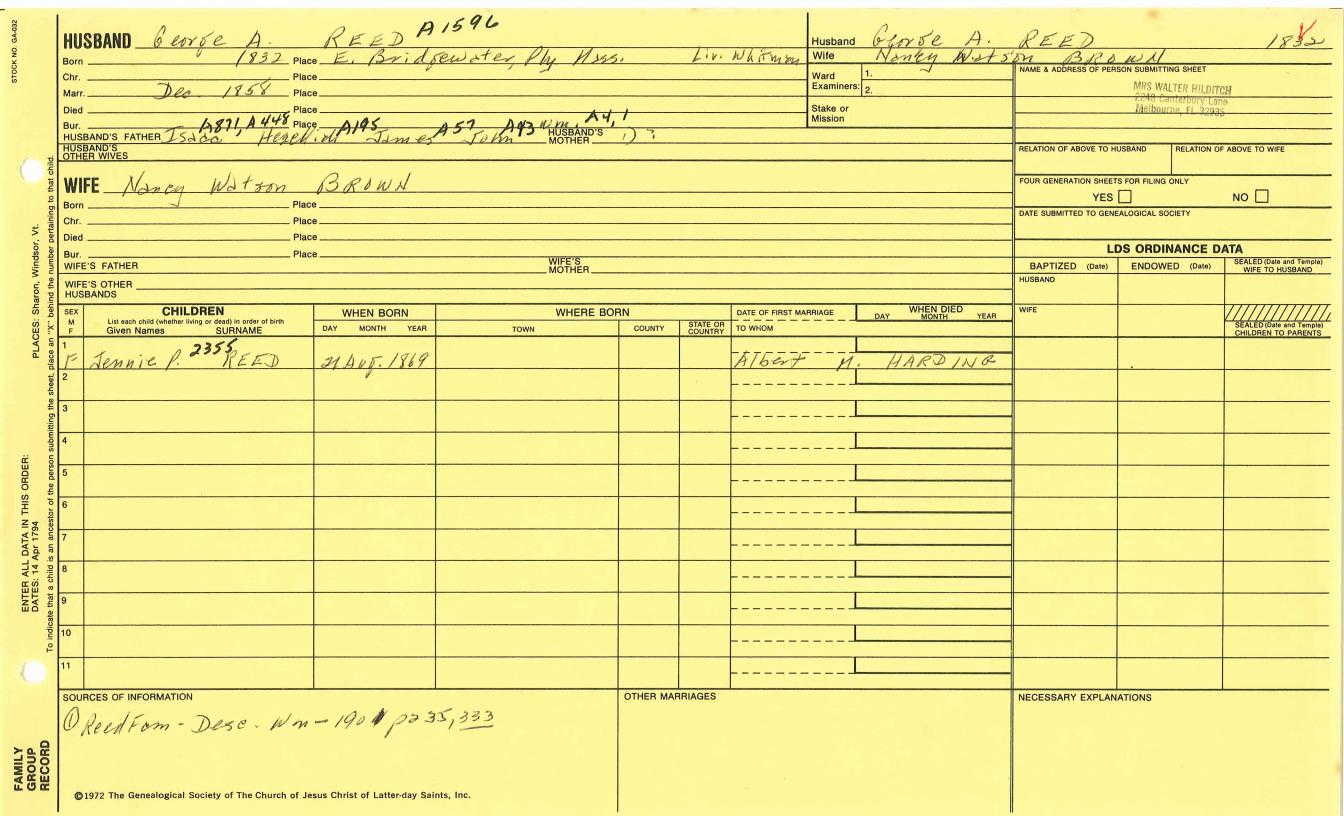 STOCK NO. GA-032
HUSBAND George A. REED A1596
Born 1832 Place E. Bridgewater, Ply Mass. Liv. Whitman
Chr. Place
Marr. Dec. 1858 Place
Died Place
Bur. A871, A448 Place A195 A57 A43 Wm. A4, 1
HUSBAND'S FATHER Isaac Hezekiah James John HUSBAND'S MOTHER
HUSBAND'S OTHER WIVES
Husband George A. REED 1832
Wife Nancy Watson BROWN
Ward Examiners: 1.
2.
Stake or Mission
NAME & ADDRESS OF PERSON SUBMITTING SHEET
MRS WALTER HILDITCH
2248 Canterbury Lane
Melbourne, FL 32935
RELATION OF ABOVE TO HUSBAND RELATION OF ABOVE TO WIFE
FOUR GENERATION SHEETS FOR FILING ONLY
YES NO
DATE SUBMITTED TO GENEALOGICAL SOCIETY
WIFE Nancy Watson BROWN
Born Place
Chr. Place
Died Place
Bur. Place
WIFE'S FATHER WIFE'S MOTHER
WIFE'S OTHER HUSBANDS
LDS ORDINANCE DATA
BAPTIZED (Date) ENDOWED (Date) SEALED (Date and Temple) WIFE TO HUSBAND
HUSBAND
WIFE
SEALED (Date and Temple) CHILDREN TO PARENTS
SEX M F CHILDREN
List each child (whether living or dead) in order of birth
Given Names SURNAME
WHEN BORN
DAY MONTH YEAR
WHERE BORN
TOWN COUNTY STATE OR COUNTRY
DATE OF FIRST MARRIAGE
TO WHOM
WHEN DIED
DAY MONTH YEAR
1 F Jennie P. 2355 REED 21 Aug. 1869 Albert M. HARDING
2
3
4
5
6
7
8
9
10
11
SOURCES OF INFORMATION
① Reed Fam - Desc. Wm - 1901 p 235, 333
OTHER MARRIAGES
NECESSARY EXPLANATIONS
©1972 The Genealogical Society of The Church of Jesus Christ of Latter-day Saints, Inc.
FAMILY GROUP RECORD
ENTER ALL DATA IN THIS ORDER:
DATES: 14 Apr 1794
PLACES: Sharon, Windsor, Vt.
To indicate that a child is an ancestor of the person submitting the sheet, place an "X" behind the number pertaining to that child.